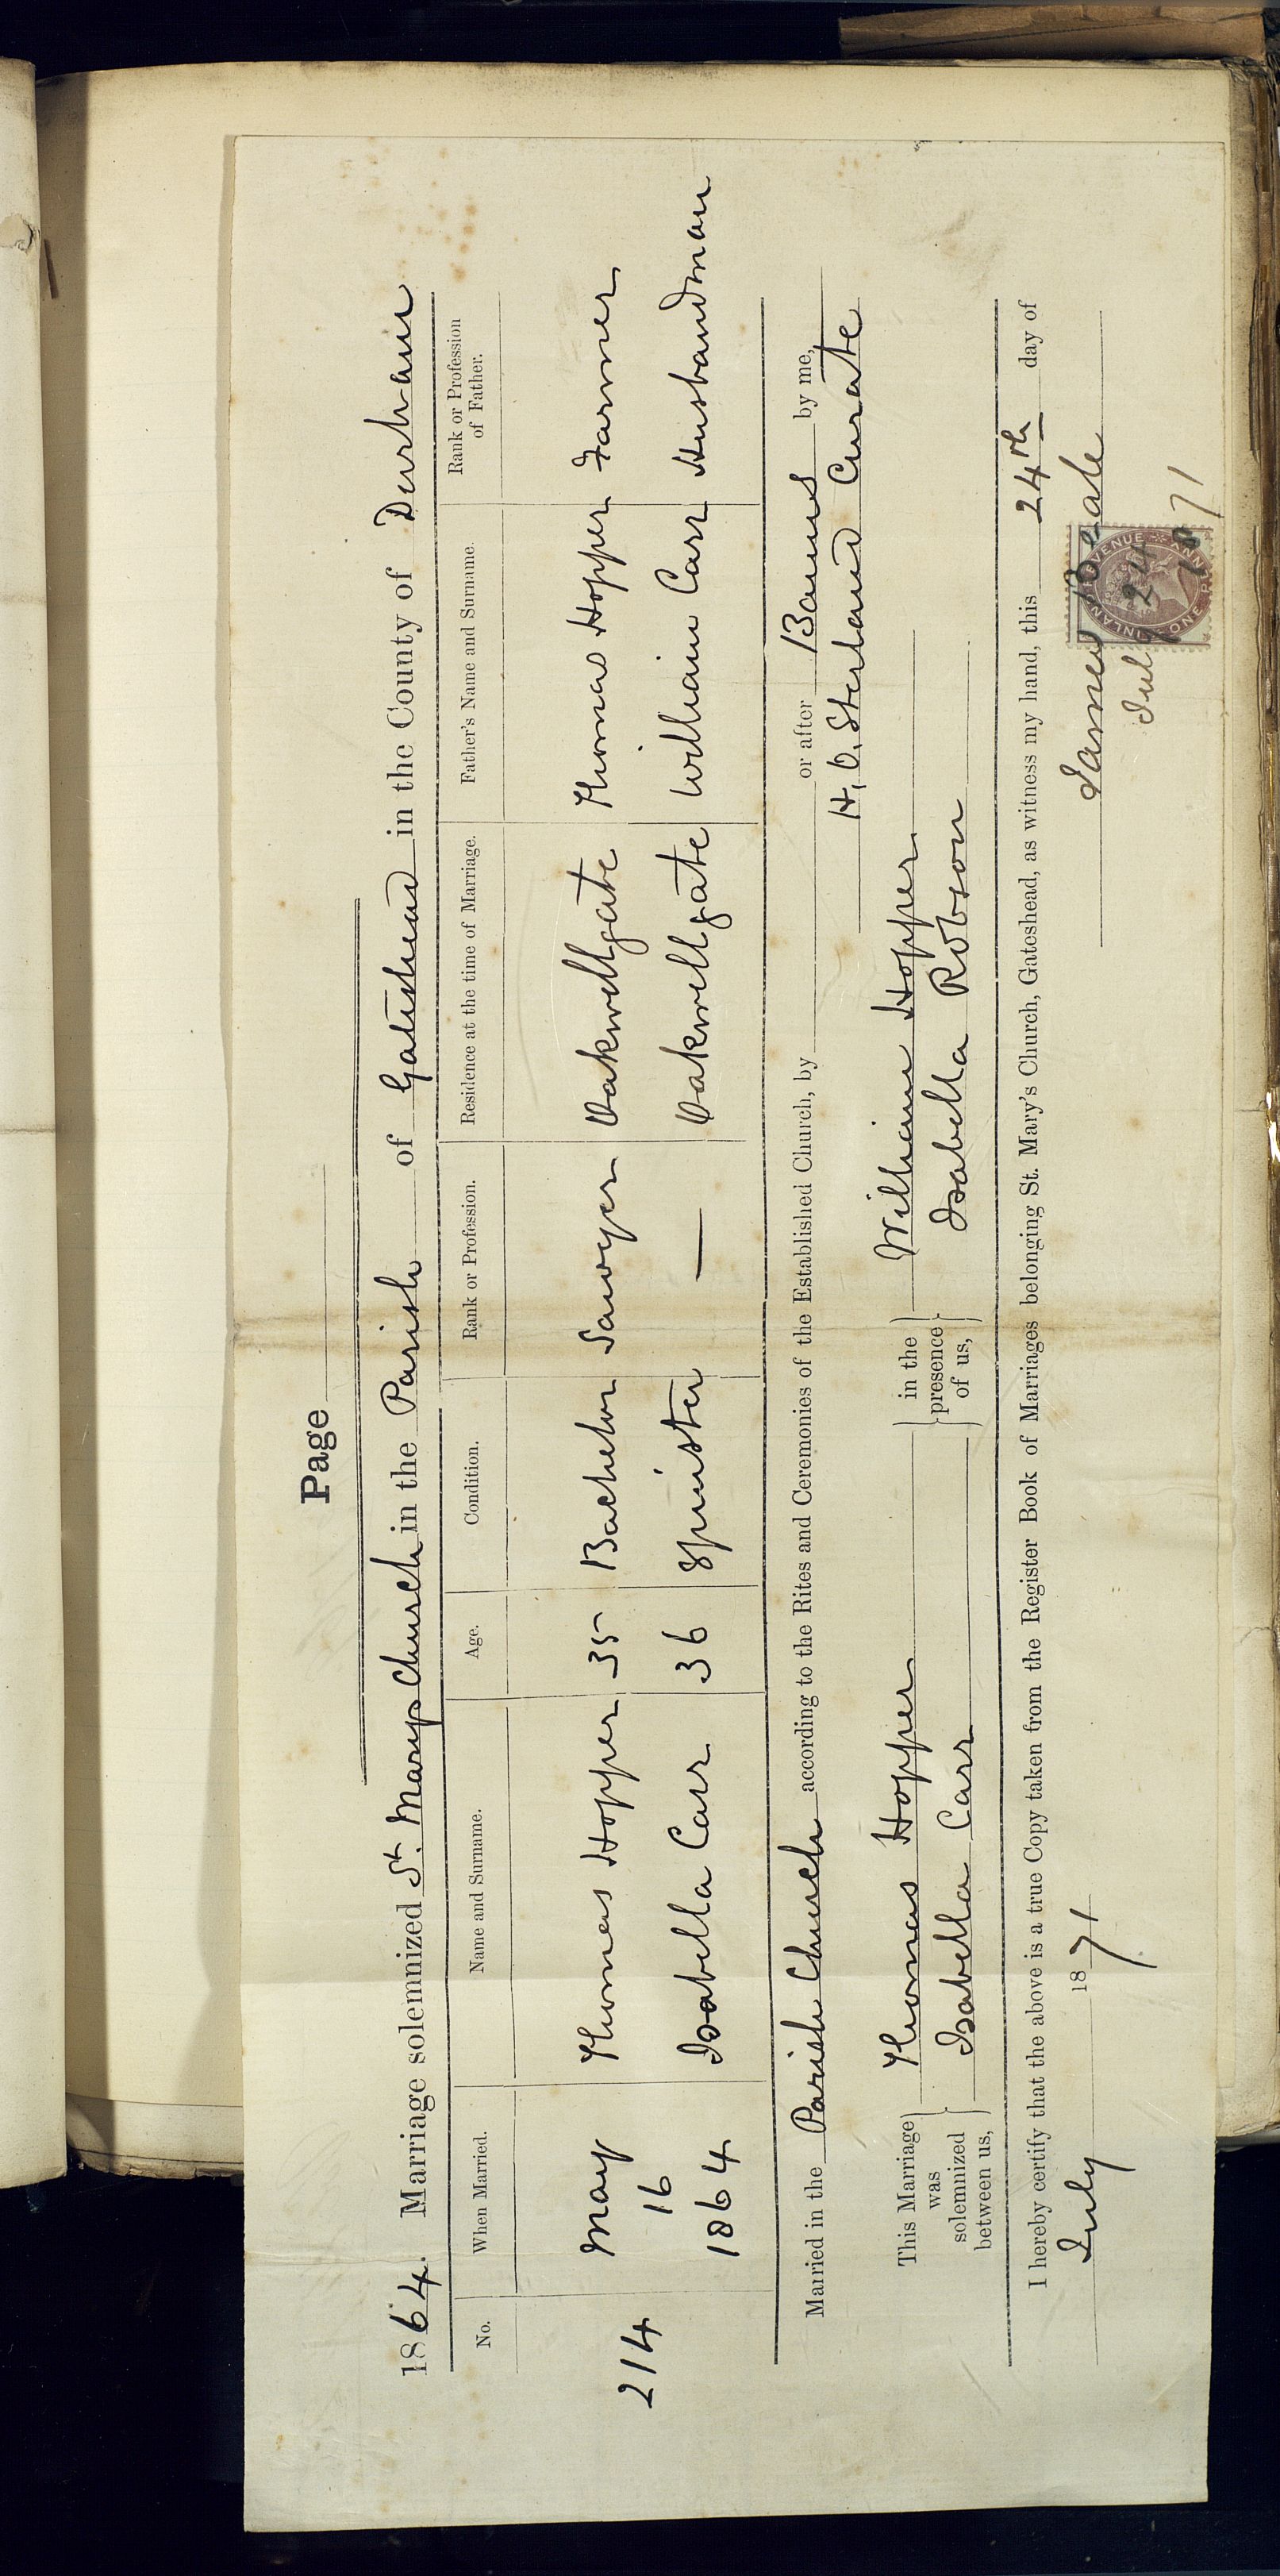 Page
1864. Marriage solemnized St. Marys Church in the Parish of Gateshead in the County of Durham
No. When Married. Name and Surname. Age. Condition. Rank or Profession. Residence at the time of Marriage. Father's Name and Surname. Rank or Profession of Father.
214 May 16 1864 Thomas Hopper 35 Bachelor Sawyer Oakwellgate Thomas Hopper Farmer
Isabella Carr 36 Spinster — Oakwellgate William Carr Husbandman
Married in the Parish Church according to the Rites and Ceremonies of the Established Church, by or after Banns by me,
H. O. Sterland Curate
This Marriage was solemnized between us, Thomas Hopper in the presence of us, William Hopper
Isabella Carr Isabella Robson
I hereby certify that the above is a true Copy taken from the Register Book of Marriages belonging St. Mary's Church, Gateshead, as witness my hand, this 24th day of
July 1871 James Beale
INLAND REVENUE ONE PENNY
July 24 1871